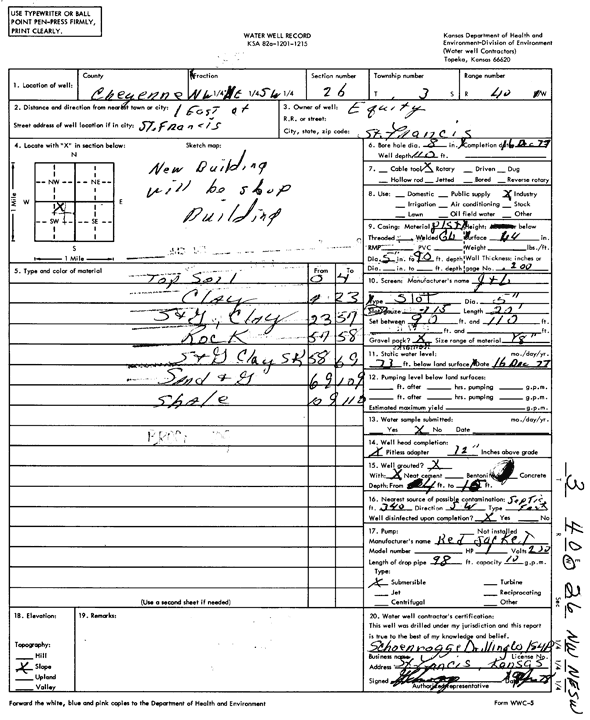 USE TYPEWRITER OR BALL
POINT PEN-PRESS FIRMLY,
PRINT CLEARLY.
WATER WELL RECORD
KSA 82a-1201-1215
Kansas Department of Health and
Environment-Division of Environment
(Water well Contractors)
Topeka, Kansas 66620
1. Location of well:
County
Cheyenne
Fraction
NW 1/4 NE 1/4 SW 1/4
Section number
26
Township number
T 3 S
Range number
R 40 W
2. Distance and direction from nearest town or city: 1 East of
Street address of well location if in city: St. Francis
3. Owner of well: Equity
R.R. or street:
City, state, zip code: St. Francis
4. Locate with "X" in section below:
N
NW NE
W E
X
SW SE
S
1 Mile
1 Mile
Sketch map:
New Building
will be shop
Building
6. Bore hole dia. 8 in. Completion date 16 Dec 77
Well depth 110 ft.
7. Cable tool X Rotary Driven Dug
Hollow rod Jetted Bored Reverse rotary
8. Use: Domestic Public supply X Industry
Irrigation Air conditioning Stock
Lawn Oil field water Other
9. Casing: Material plst Height: below
Threaded Welded Surface in.
RMP PVC Weight lbs./ft.
Dia. 5 in. to 90 ft. depth Wall Thickness: inches or
Dia. in. to ft. depth gage No. .200
5. Type and color of material
From To
Top Soil 0 4
Clay 4 23
S&G, Clay 23 57
Rock 57 58
S&G Clay SR 58 69
Snd & G 69 109
Shale 109 110
10. Screen: Manufacturer's name
Type Slot Dia. 5"
Slot/gauze Length 20'
Set between 90 ft. and 110 ft.
ft. and ft.
Gravel pack? X Size range of material 1/8"
11. Static water level: mo./day/yr.
ft. below land surface Date 16 Dec 77
12. Pumping level below land surfaces:
ft. after hrs. pumping g.p.m.
ft. after hrs. pumping g.p.m.
Estimated maximum yield g.p.m.
13. Water sample submitted: mo./day/yr.
Yes X No Date
14. Well head completion:
X Pitless adapter 12" Inches above grade
15. Well grouted? X
With: X Neat cement Bentonite Concrete
Depth: From ft. to ft.
16. Nearest source of possible contamination: Septic
ft. 340 Direction SW Type
Well disinfected upon completion? X Yes No
17. Pump: Not installed
Manufacturer's name Red Jacket
Model number HP 1 Volts 220
Length of drop pipe 98 ft. capacity 10 g.p.m.
Type:
X Submersible Turbine
Jet Reciprocating
Centrifugal Other
(Use a second sheet if needed)
18. Elevation:
Topography:
Hill
X Slope
Upland
Valley
19. Remarks:
20. Water well contractor's certification:
This well was drilled under my jurisdiction and this report
is true to the best of my knowledge and belief.
Schoenrogge Drilling Co
Business name License No.
Address St. Francis, Kansas
Signed Date
Authorized representative
Forward the white, blue and pink copies to the Department of Health and Environment
Form WWC-5
T 3
R 40 E W
Sec 26
1/4 1/4 1/4 NW NE SW